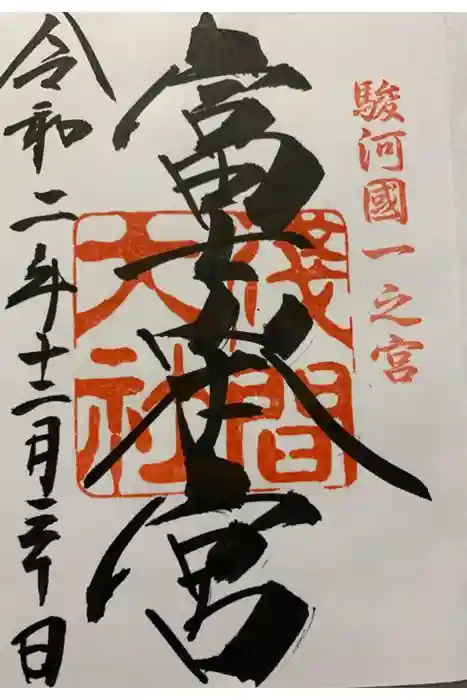 駿河國一之宮
富士本宮
淺間大社
令和二年十二月二十日